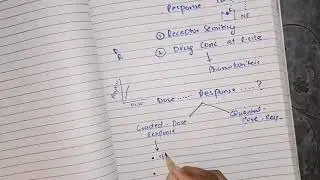 Response
NE
① Receptor Sensitivity
② Drug Conc at R-site
Dose ...... Response .....?
Graded - Dose
Response
Quantal -
Dose Resp..